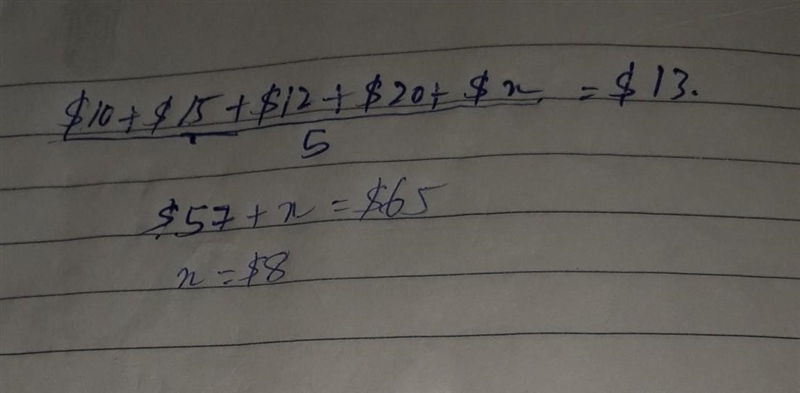 $10 + $15 + $12 + $20 + $x = $13.
5
$57 + x = $65
x = $8